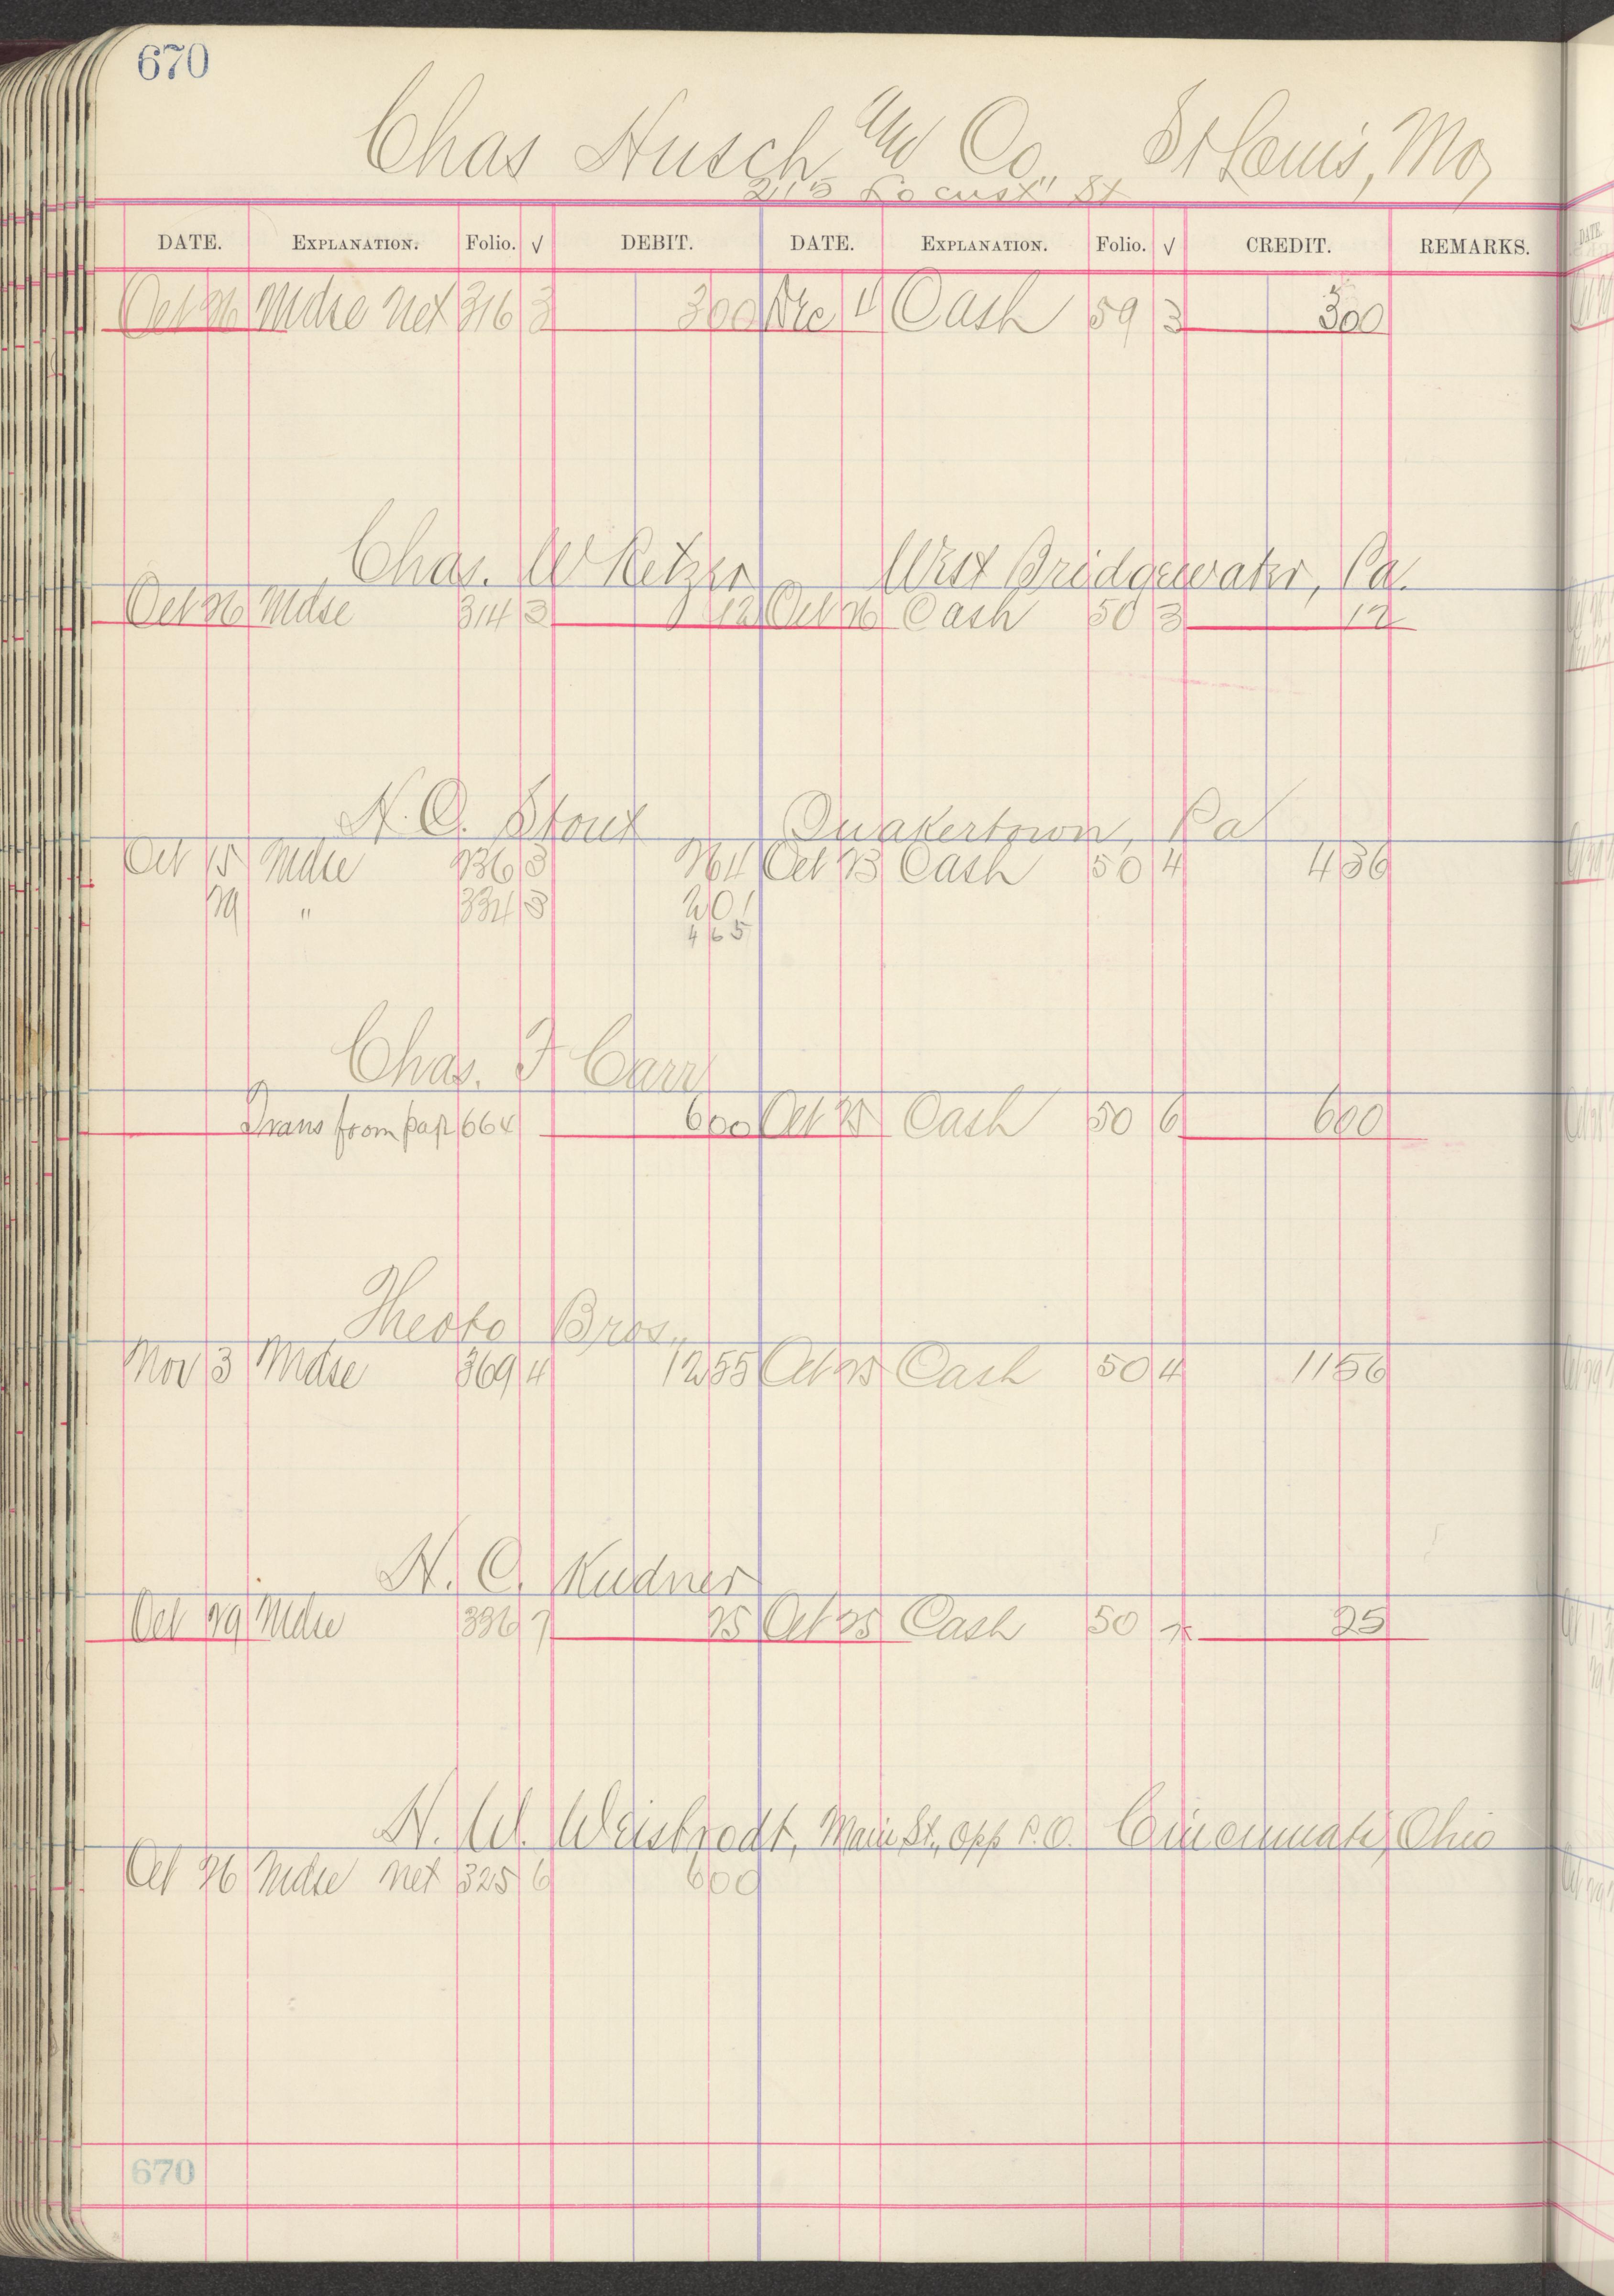 670
Chas Husch and Co., St Louis, Mo,
2115 Locust St
DATE. EXPLANATION. Folio. √ DEBIT. DATE. EXPLANATION. Folio. √ CREDIT. REMARKS.
Oct 26 Mdse Net 316 3 300 Dec 4 Cash 59 3 300
Chas. W Retzer West Bridgewater, Pa.
Oct 26 Mdse 314 3 12 Oct 26 Cash 50 3 12
H. O. Stout Quakertown, Pa
Oct 15 Mdse 236 3 264 Oct 23 Cash 50 4 436
29 " 334 3 201
465
Chas. F Carr
Trans from page 664 600 Oct 25 Cash 50 6 600
Bros.,
Nov 3 Mdse 369 4 1255 Oct 25 Cash 50 4 1156
H. C. Kudner
Oct 29 Mdse 336 7 25 Oct 25 Cash 50 7 25
H. W. Weisbrodt, Main St., Opp P.O. Cincinnati, Ohio
Oct 26 Mdse net 325 6 600
670